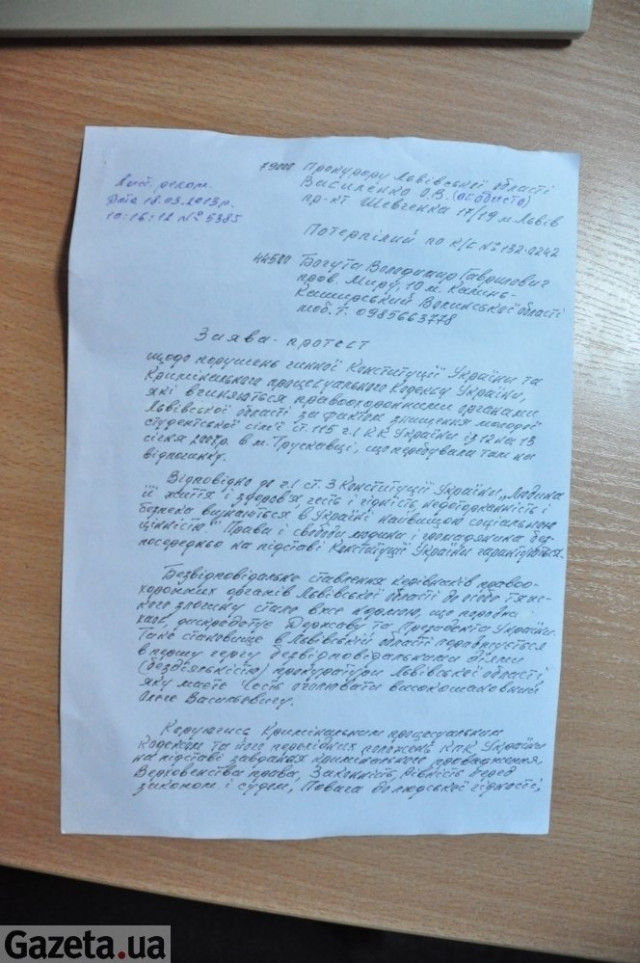 79000 Прокурору Львівської області
Василенко О.В. (особисто)
пр-кт Шевченка 17/19 м. Львів
Лист. реком.
Дата 18.03.2013р.
10-16-12 № 5385
Потерпілий по к/с № 132-0242
44500 Богута Володимир Гаврилович
пров. Миру, 10 м. Камінь-
Каширський Волинської області
моб. т. 0985663778
Заява - протест
щодо порушень чинної Конституції України та
Кримінального процесуального Кодексу України,
які вчиняються правоохоронними органами
Львівської області за фактом знищення молодої
студентської сім'ї ст. 115 ч. КК України із 12 на 13
січня в м. Трускавці, що перебувала там на
відпочинку.
Відповідно до ч. ст. 3 Конституції України, „Людина
її життя і здоров'я честь і гідність недоторканність і
безпека визнаються в Україні найвищою соціальною
цінністю" Права і свободи людини і громадянина без-
посередньо на підставі Конституції України гарантуються.
Безвідповідальне ставлення керівників правоо-
хоронних органів Львівської області до
злочину стало вже нормою, що
дискредитує Державу та Президента України.
Таке становище в Львівській області
в першу чергу безвідповідальними діями
(бездіяльністю) прокуратури Львівської області,
яку маєте честь очолювати високошановний
Олеге Васильовичу.
Керуючись Кримінальним процесуальним
Кодексом та положень КПК України
на підставі завдання кримінального провадження,
Верховенства права, Законність, Рівність перед
законом і судом, Повага до людської гідності,
Gazeta.ua